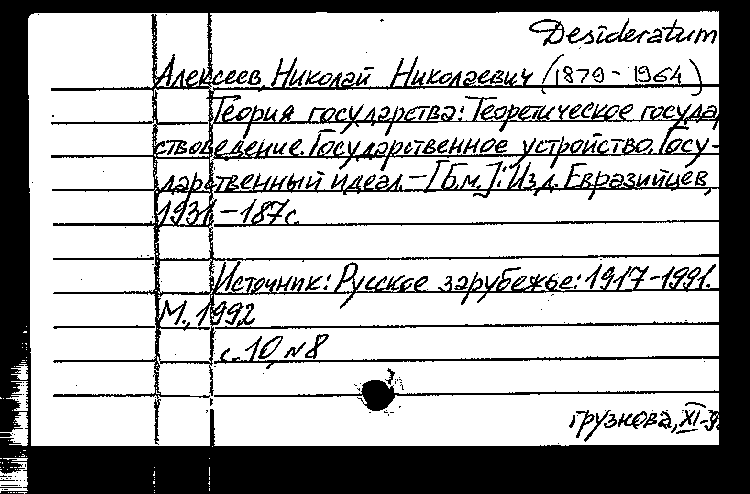 Desideratum
Алексеев, Николай Николаевич (1879-1964)
Теория государства: Теоретическое госуда
ствоведение. Государственное устройство. Госу-
дарственный идеал. - [Б.м.]: Изд. Евразийцев,
1931. - 187 с.
Источник: Русское зарубежье: 1917-1991.
М., 1992
с. 10, N 8
грузнова, XI-9